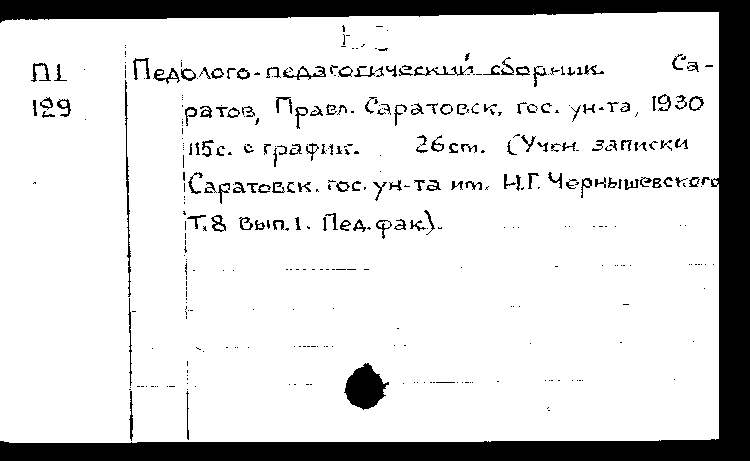 П1 Педолого-педагогический сборник. Са-
129 ратов, Правл. Саратовск. гос. ун-та, 1930
115с. с график. 26cm. (Учен. записки
Саратовск. гос. ун-та им. Н.Г. Чернышевского
Т.8 Вып.1. Пед.фак).